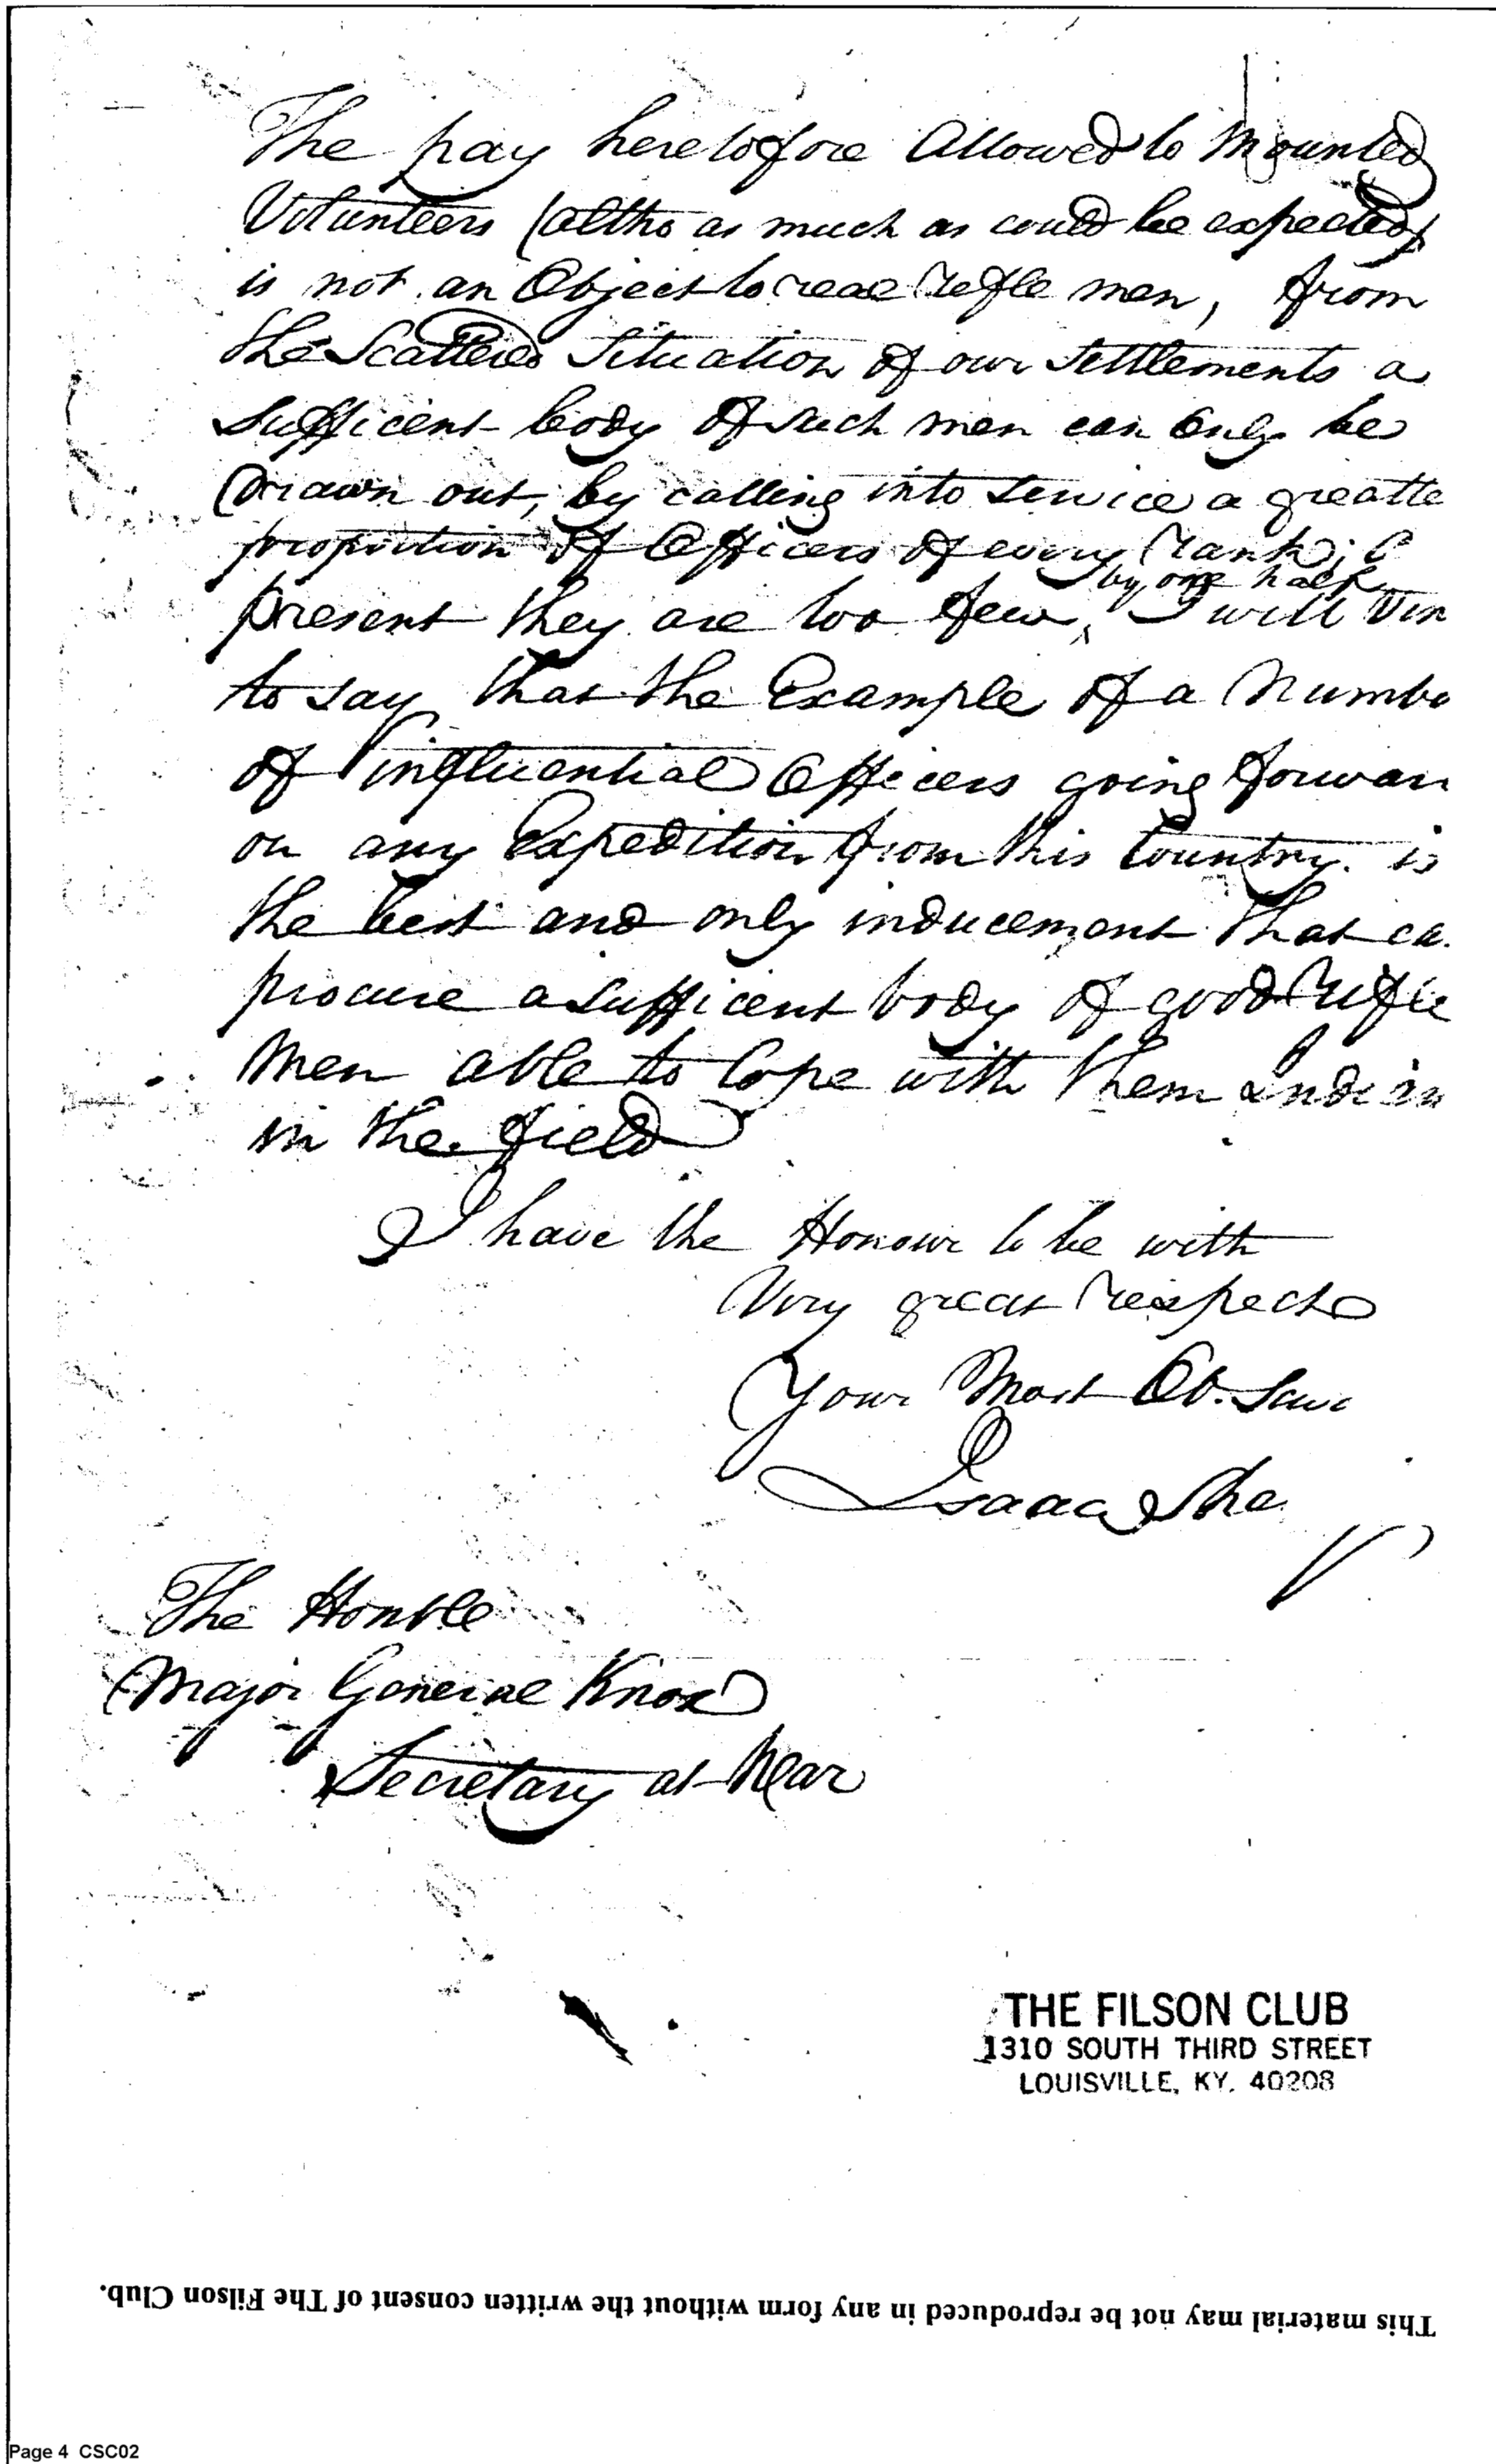 The pay heretofore Allowed to Mounted
Volunteers (altho as much as could be expected)
is not an Object to real Rifle men, from
the Scattered Situation of our Settlements a
Sufficent body of such men can Only be
Drawn out, by calling into Service a greatte
proportion of Officers of every Rank;
by one half
present they are too few, I will Ven
to say that the Example of a Numbe
of influential Officers going forwar
on any Expedition from this Country. is
the best and only inducement that ca
procure a sufficent body of good Rifle
Men able to Cope with them Indian
in the field
I have the Honour to be with
Very great respect
Your Most Ob. Serv
Isaac She
The Honble
Major General Knox
Secretary at War
THE FILSON CLUB
1310 SOUTH THIRD STREET
LOUISVILLE, KY. 40208
This material may not be reproduced in any form without the written consent of The Filson Club.
Page 4 CSC02